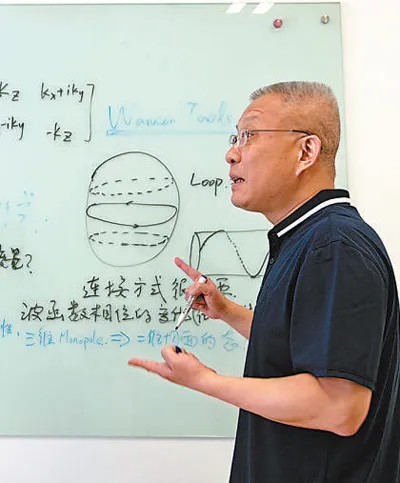 kz  kx+iky
-iky  -kz
Wannier Tools
Loop.
量?
连接方式很重要
波函数相位的变化
性, 三维 Monopoles => 二维切面的态